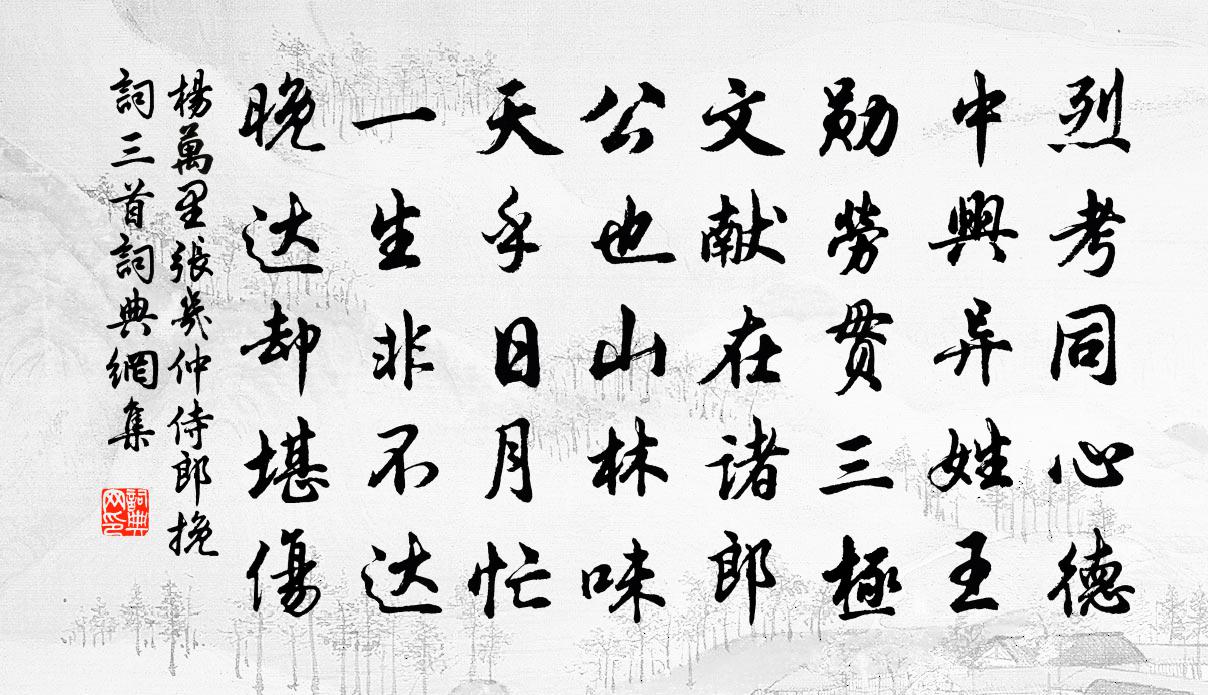 烈考同心德
中興异姓王
勛勞贯三極
文献在诸郎
公也山林味
天乎日月忙
一生非不达
晚达却堪傷
楊萬里張幾仲侍郎挽
詞三首詞典網集
詞典网印